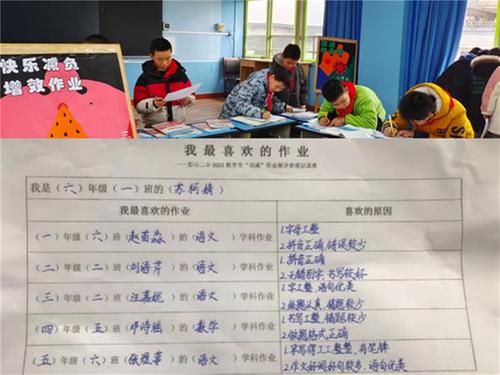 快乐减负
增效作业
我最喜欢的作业
我是（六）年级（一）班的（苏柯婧）
我最喜欢的作业 喜欢的原因
（一）年级（六）班（赵苗淼）的（语文）学科作业 1.字母工整
2.拼音正确，错误较少
（二）年级（二）班（刘语芹）的（语文）学科作业 1.拼音正确
2.无错别字，书写较好
（三）年级（二）班（汪嘉妮）的（语文）学科作业 1.字工整，语句优美
2.做题认真，错题较少
（四）年级（五）班（邓诗瑶）的（数学）学科作业 1.书写工整，错题较少
2.做题格式正确
（五）年级（六）班（张煜華）的（语文）学科作业 1.字写得工工整整，有笔锋
2.作文好词好句较多，语句优美